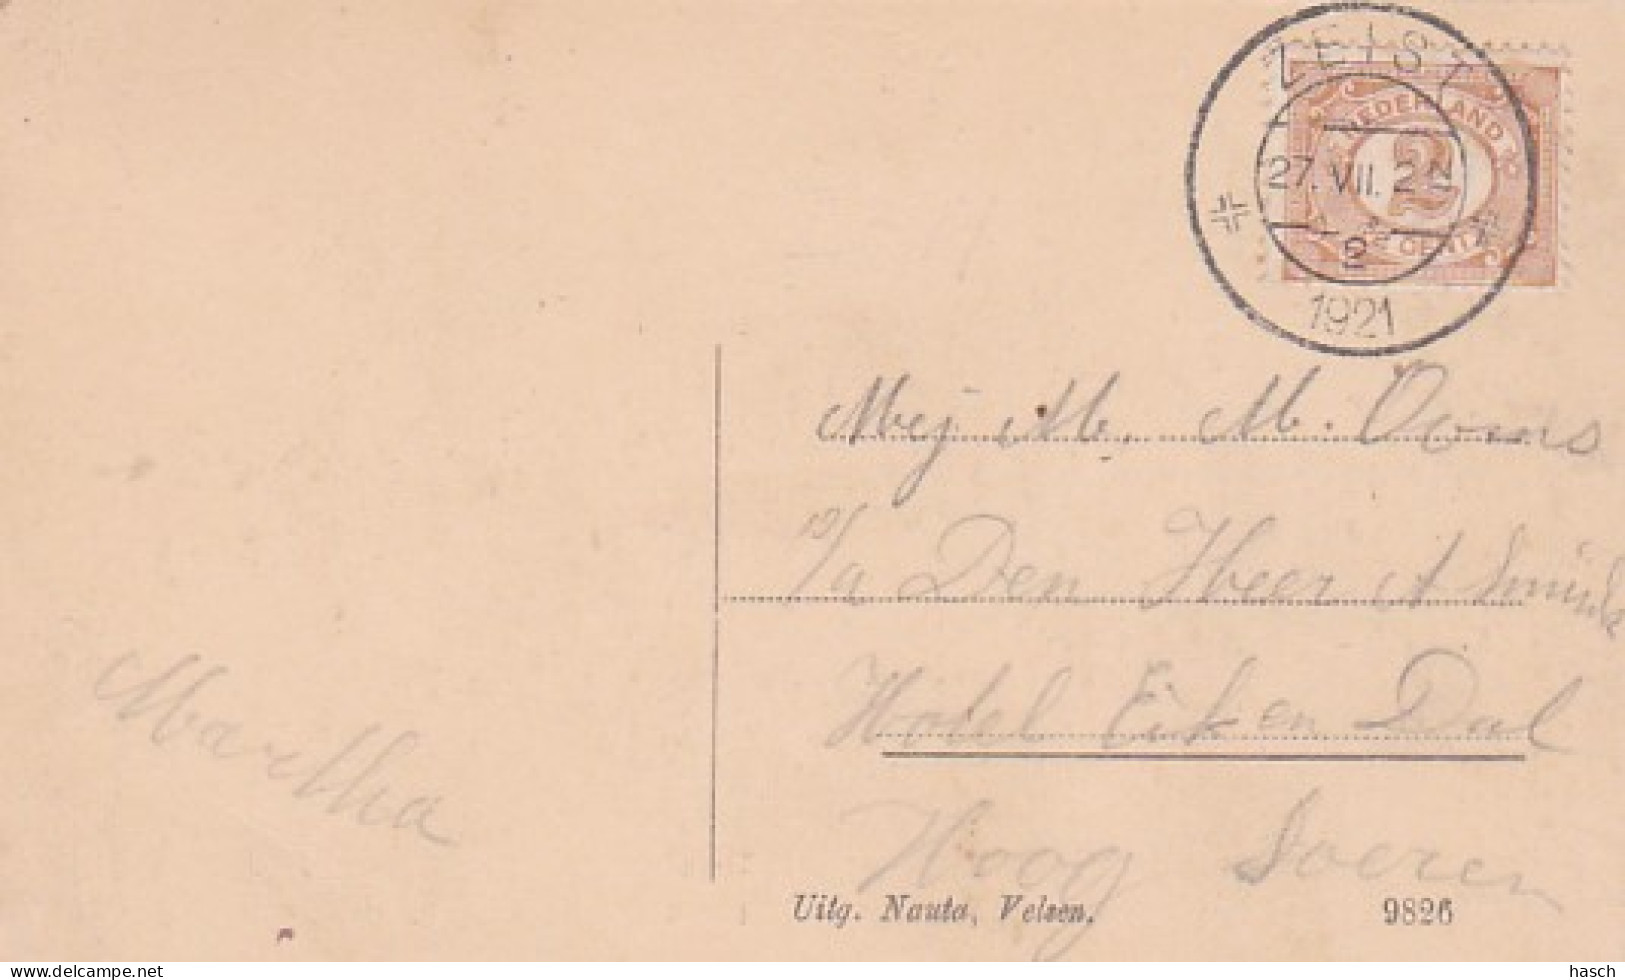 ZEIST
NEDERLAND
2
27. VII. 2 N
2
CENT
1921
Mej M. M. Ooms
p/a Den Heer A Smink
Hotel Eik en Dal
Hoog Soeren
Martha
Uitg. Nauta, Velsen. 9826
delcampe.net
hasch